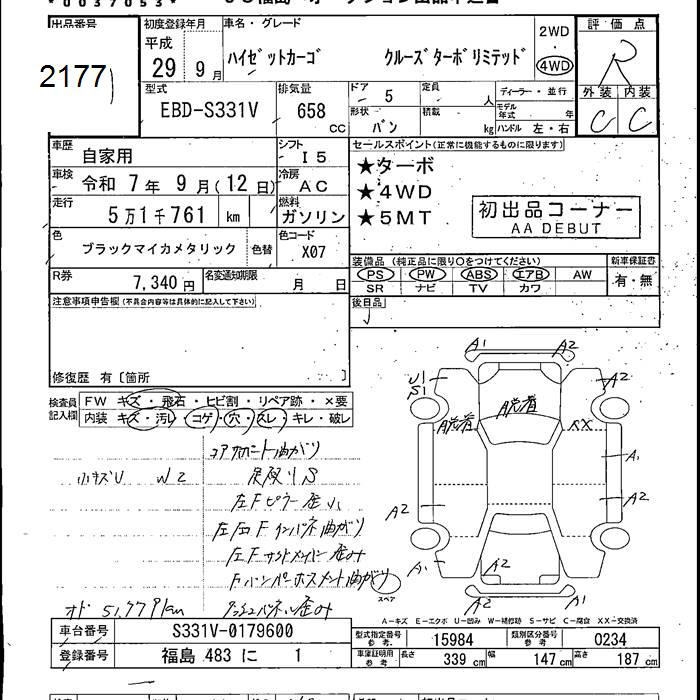 *0037053*
出品番号
2177
初度登録年月
平成
29 9月
車名・グレード
ハイゼットカーゴ クルーズターボリミテッド
2WD
4WD
評価点
R
外装 内装
C C
型式
EBD-S331V
排気量
658 cc
ドア 5
定員 人
形状 バン
積載 kg
ディーラー・並行
モデル年式 年
ハンドル 左・右
車歴 自家用
シフト I5
車検 令和 7年 9月(12日)
冷房 AC
走行 5万1千761 km
燃料 ガソリン
色 ブラックマイカメタリック 色替
色コード X07
R券 7,340円
名変通知期限 月 日
セールスポイント(正常に機能するものに限り)
★ターボ
★4WD
★5MT
初出品コーナー
AA DEBUT
装備品 (純正品に限り○をつけてください)
新車保証書
PS PW ABS エアB AW
有・無
SR ナビ TV カワ
後日品
注意事項申告欄 (不具合内容等は具体的に記入して下さい)
修復歴 有〔箇所
検査員記入欄
FW キズ・飛石・ヒビ割・リペア跡・×要
内装 キズ・汚レ・コゲ・穴・スレ・キレ・破レ
コアサポート曲がり
小キズU W2
左Fピラー歪み
左/右Fインパネ曲がり
左Fサイドメンバー歪み
Fバンパーホースメント曲がり
オド 51.779km
ダッシュパネル歪み
A1 A2
U1
S1
A2
脱着
脱着
XX
A1
A2
A2
A1
A2
A2
A2
A1
スペア
A-キズ E-エクボ U-凹み W-補修跡 S-サビ C-腐食 XX-交換済
車台番号 S331V-0179600
登録番号 福島 483 に 1
型式指定番号 参考 15984
類別区分番号 参考 0234
車庫証明用 参考 長さ 339 cm 幅 147 cm 高さ 187 cm